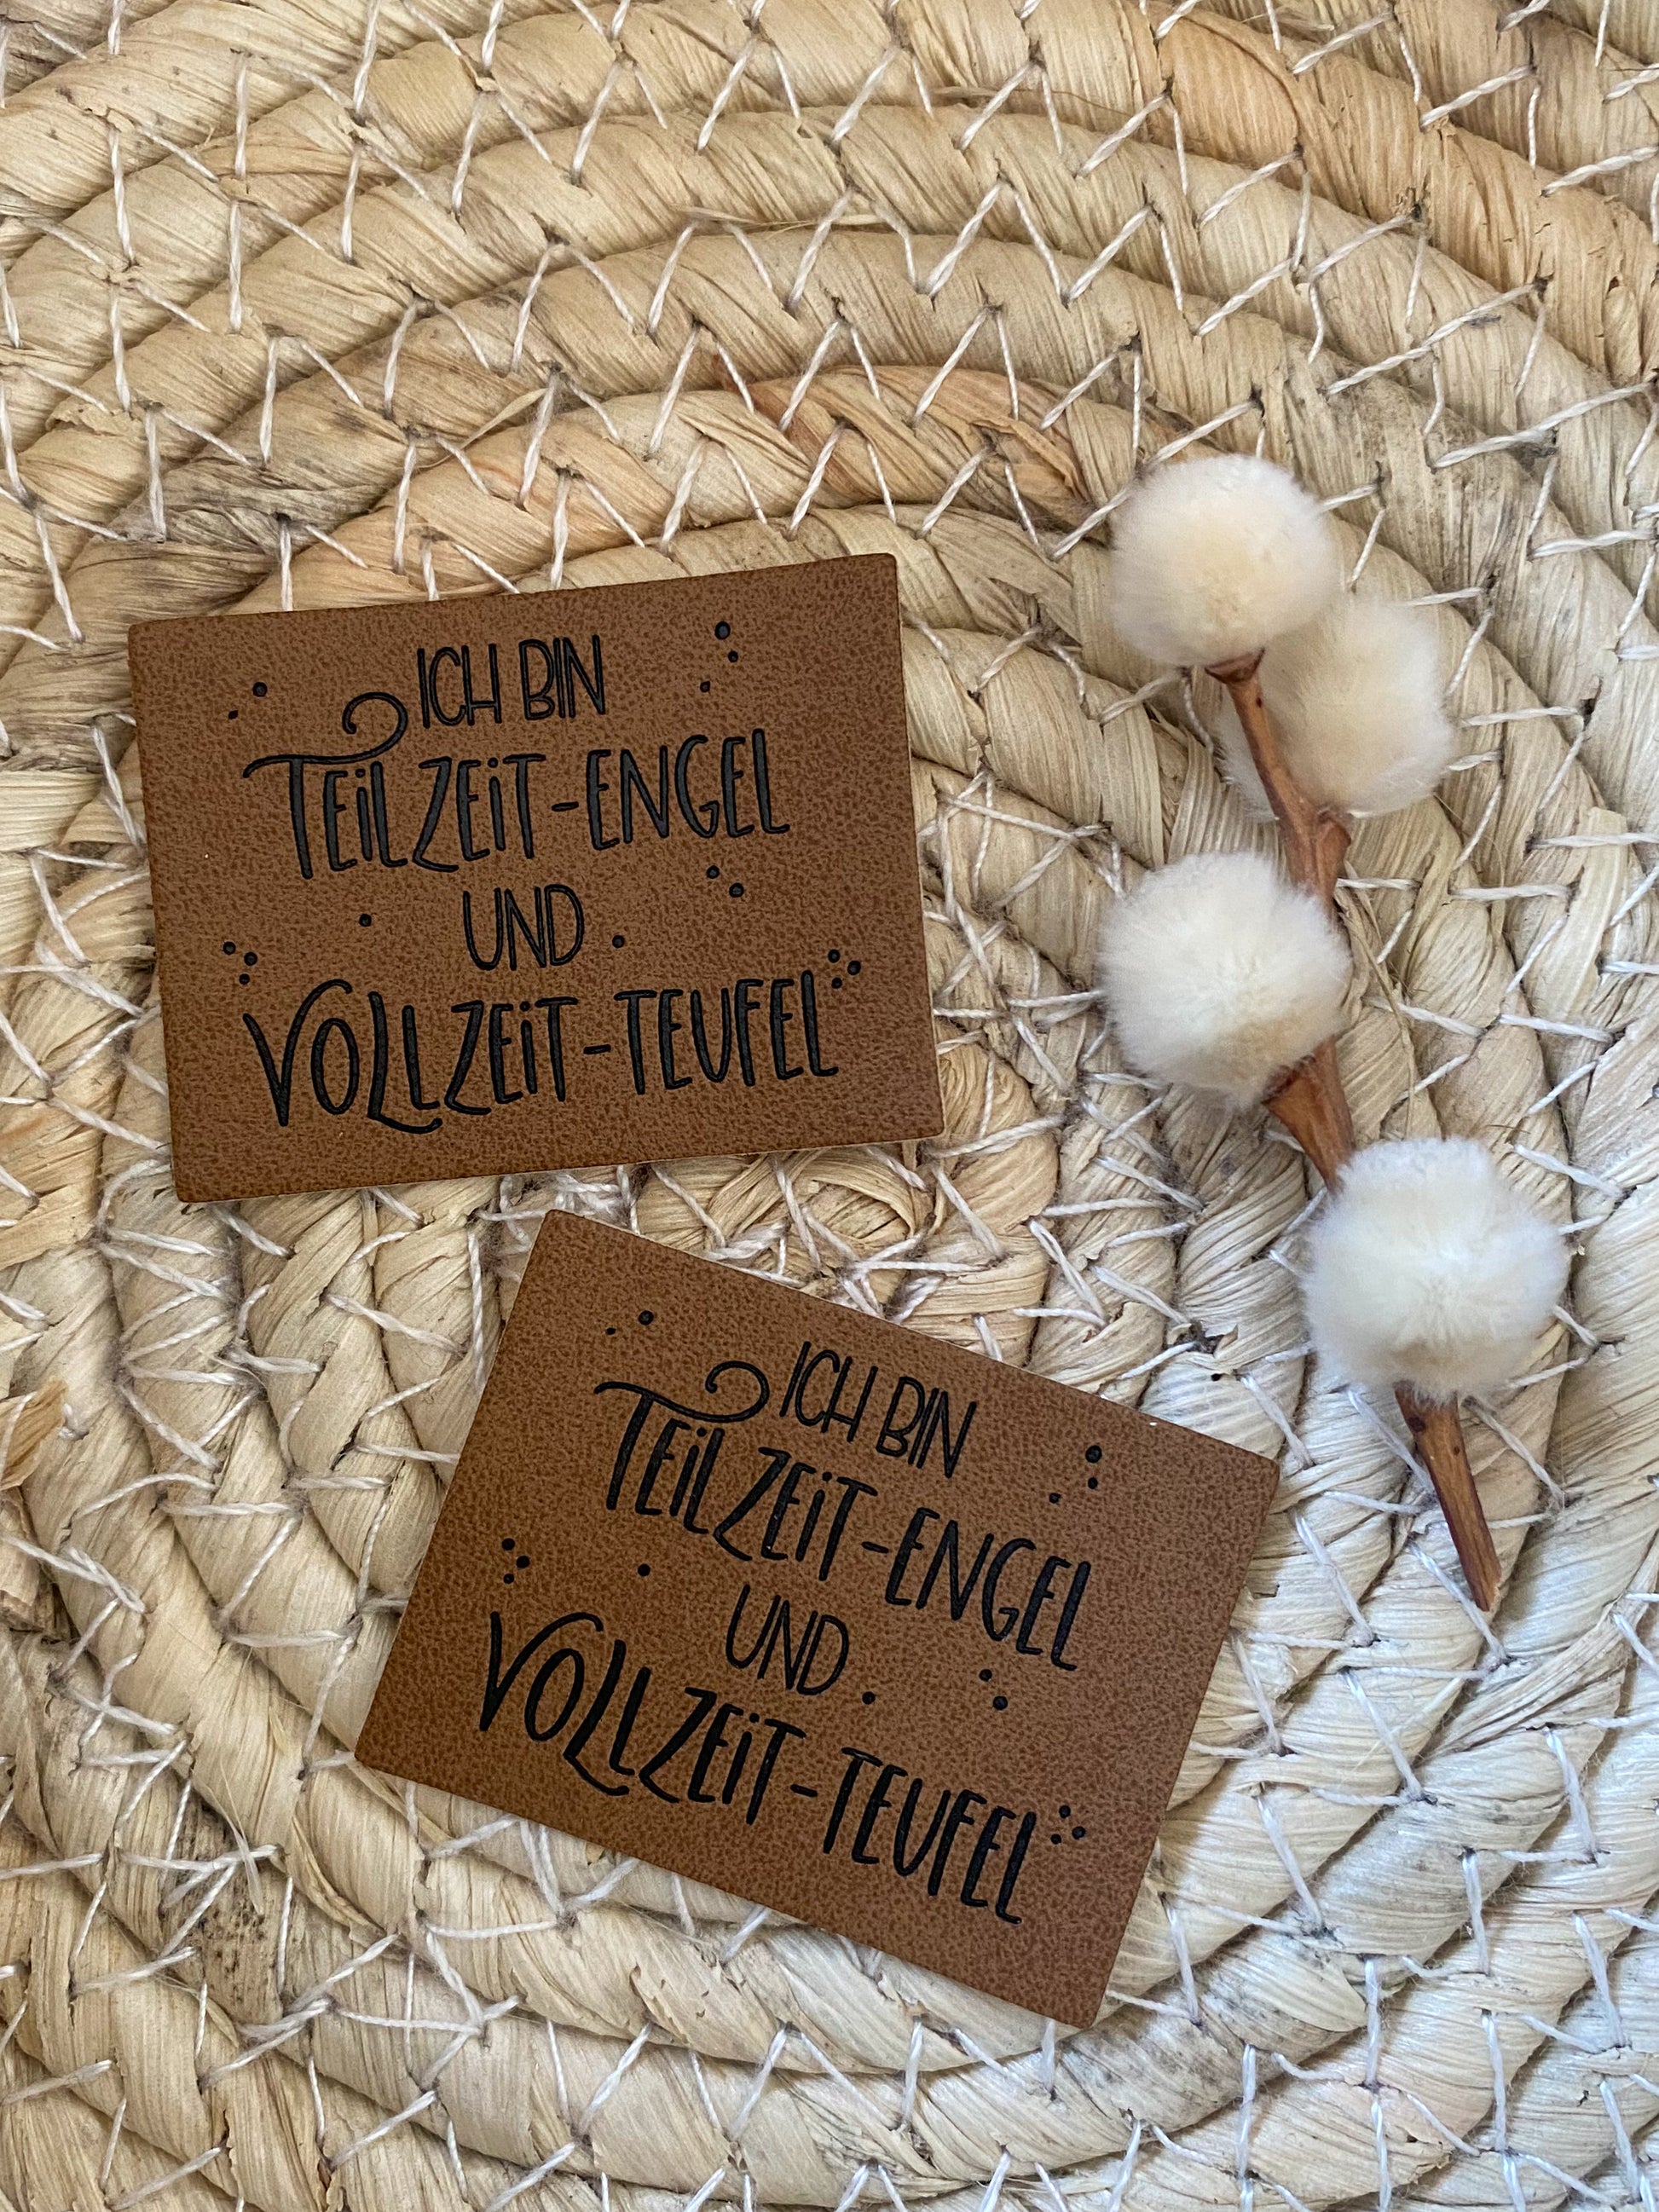 ICH BIN
TEILZEIT-ENGEL
UND
VOLLZEIT-TEUFEL
ICH BIN
TEILZEIT-ENGEL
UND
VOLLZEIT-TEUFEL